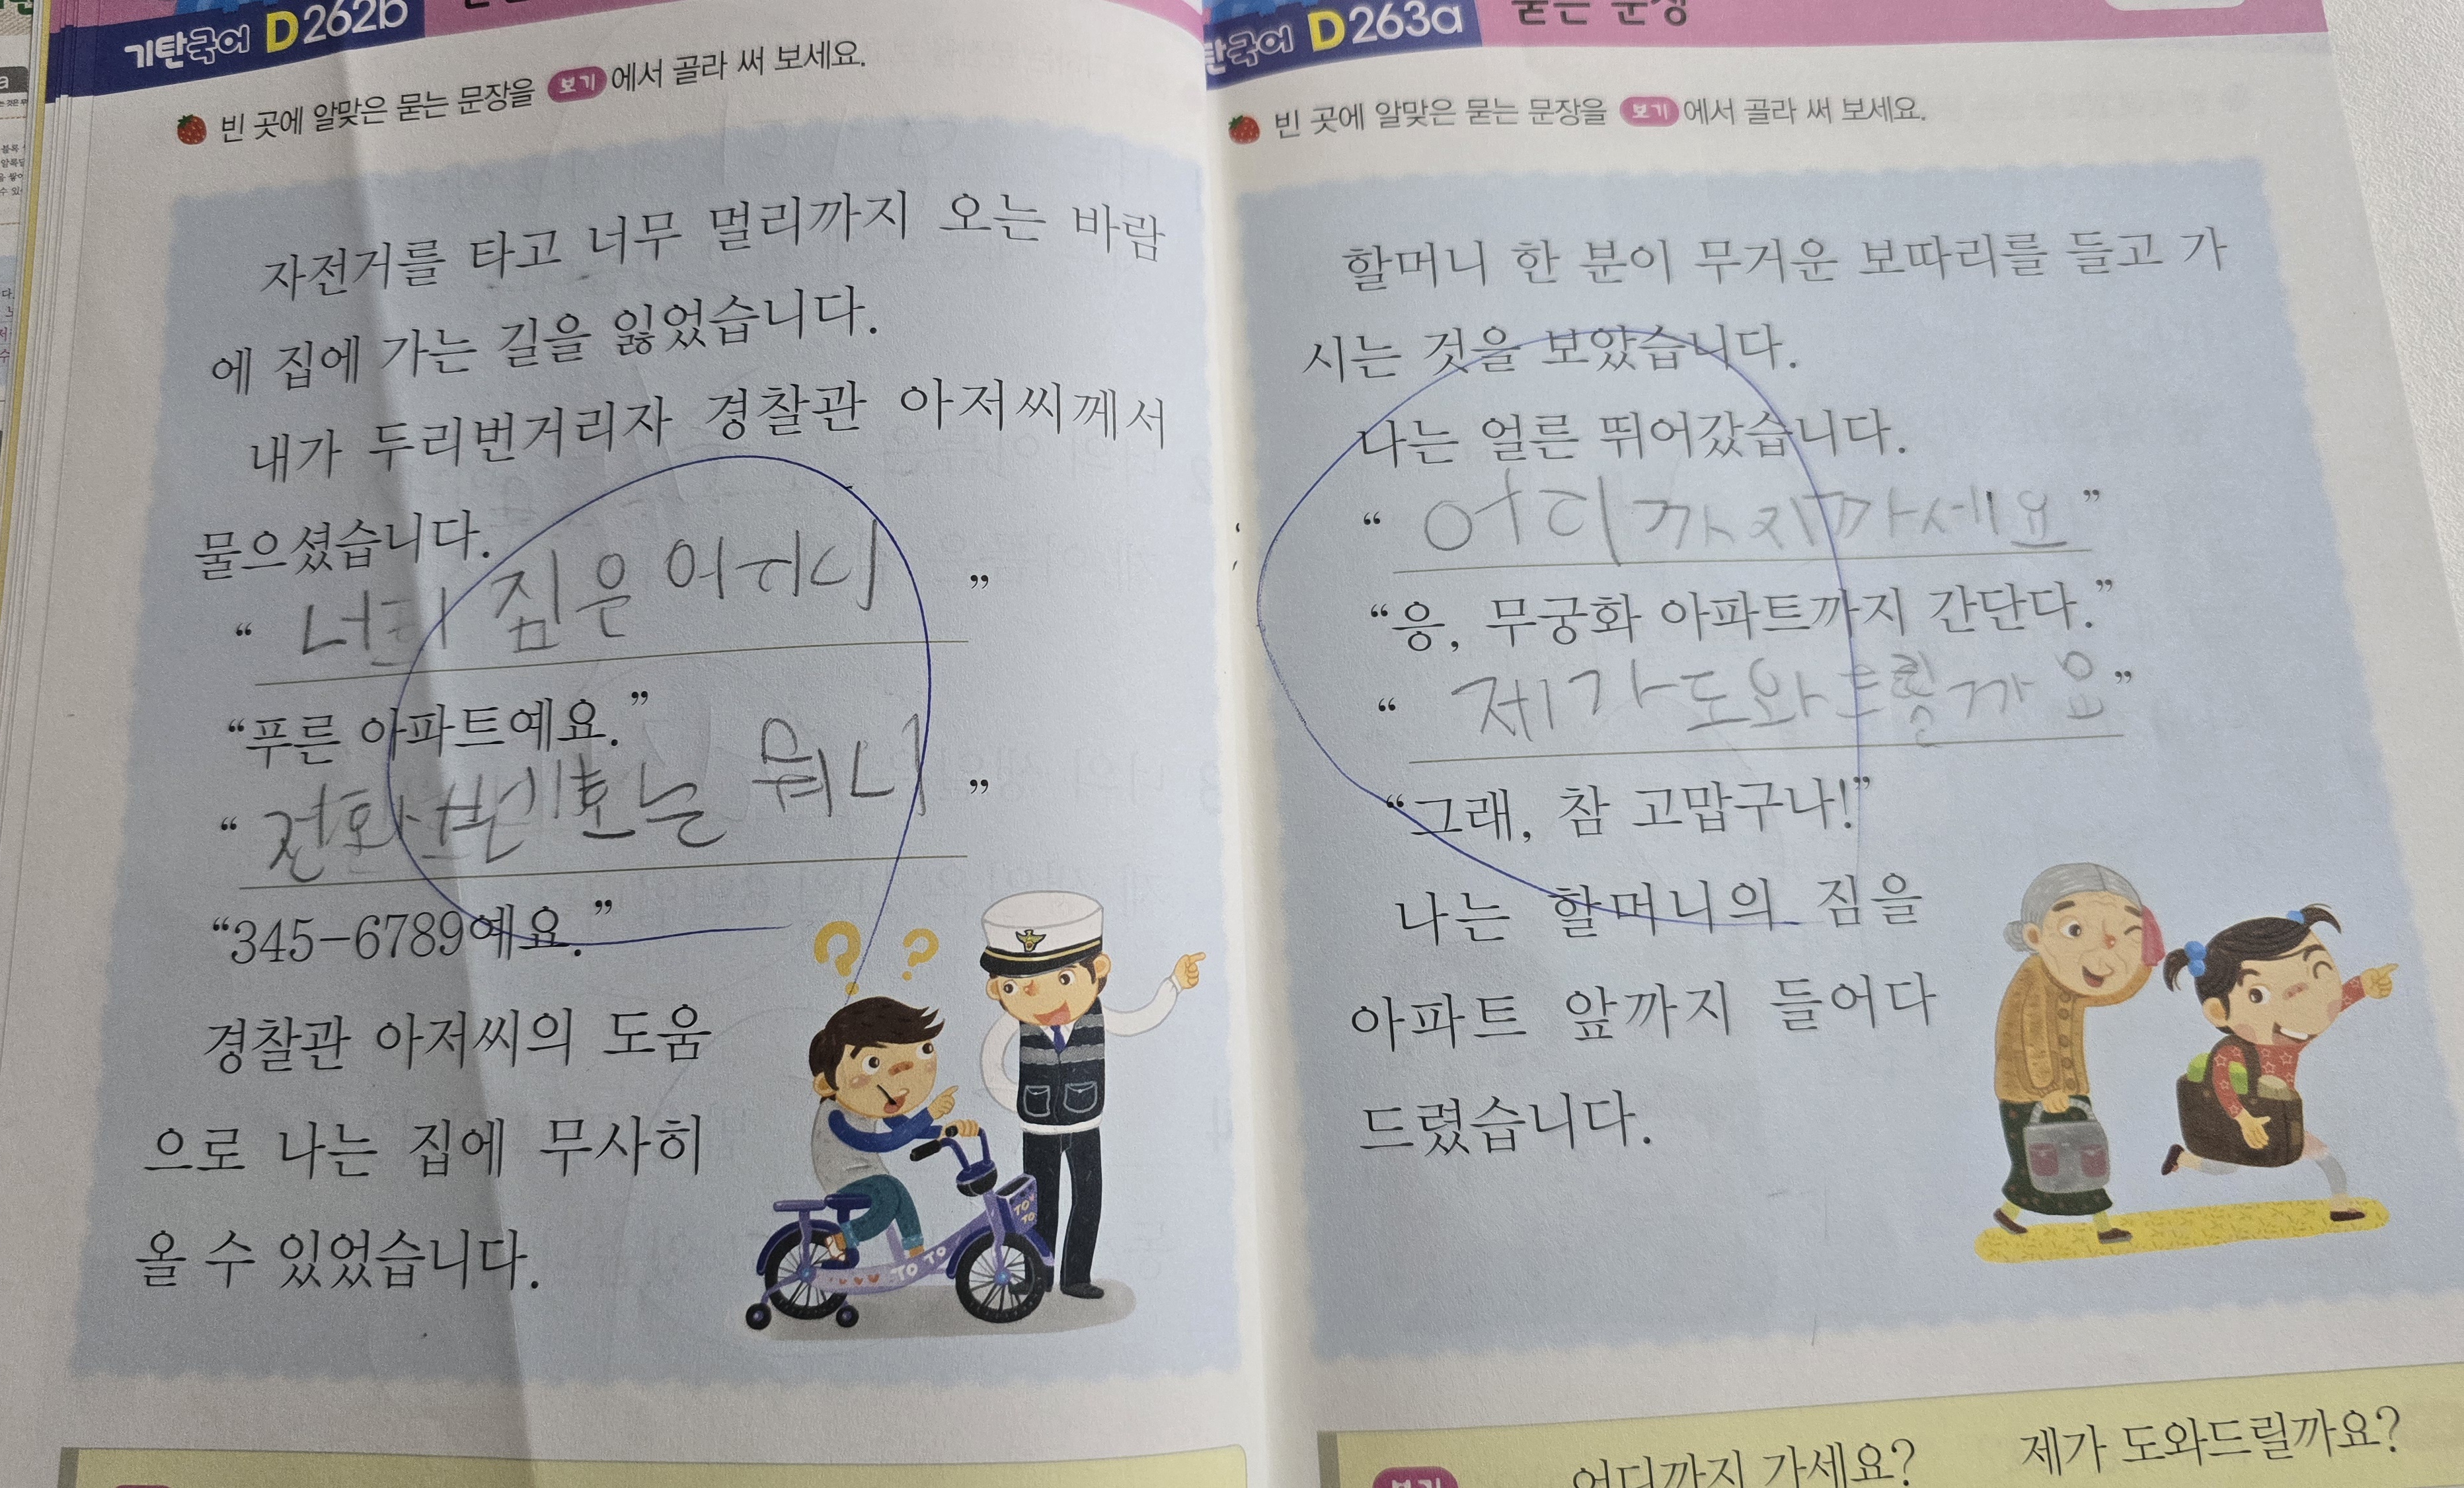 기탄국어 D262b
빈 곳에 알맞은 묻는 문장을 보기 에서 골라 써 보세요.
자전거를 타고 너무 멀리까지 오는 바람
에 집에 가는 길을 잃었습니다.
내가 두리번거리자 경찰관 아저씨께서
물으셨습니다.
“ 너희 짐은 어디니 ”
“푸른 아파트예요.”
“ 전화번호는 뭐니 ”
“345-6789예요.”
경찰관 아저씨의 도움
으로 나는 집에 무사히
올 수 있었습니다.
TO TO
TO TO
탄국어 D263a 묻는 문장
빈 곳에 알맞은 묻는 문장을 보기 에서 골라 써 보세요.
할머니 한 분이 무거운 보따리를 들고 가
시는 것을 보았습니다.
나는 얼른 뛰어갔습니다.
“ 어디까지까세요 ”
“응, 무궁화 아파트까지 간단다.”
“ 제가도와드릴까요 ”
“그래, 참 고맙구나!”
나는 할머니의 짐을
아파트 앞까지 들어다
드렸습니다.
보기 어디까지 가세요? 제가 도와드릴까요?